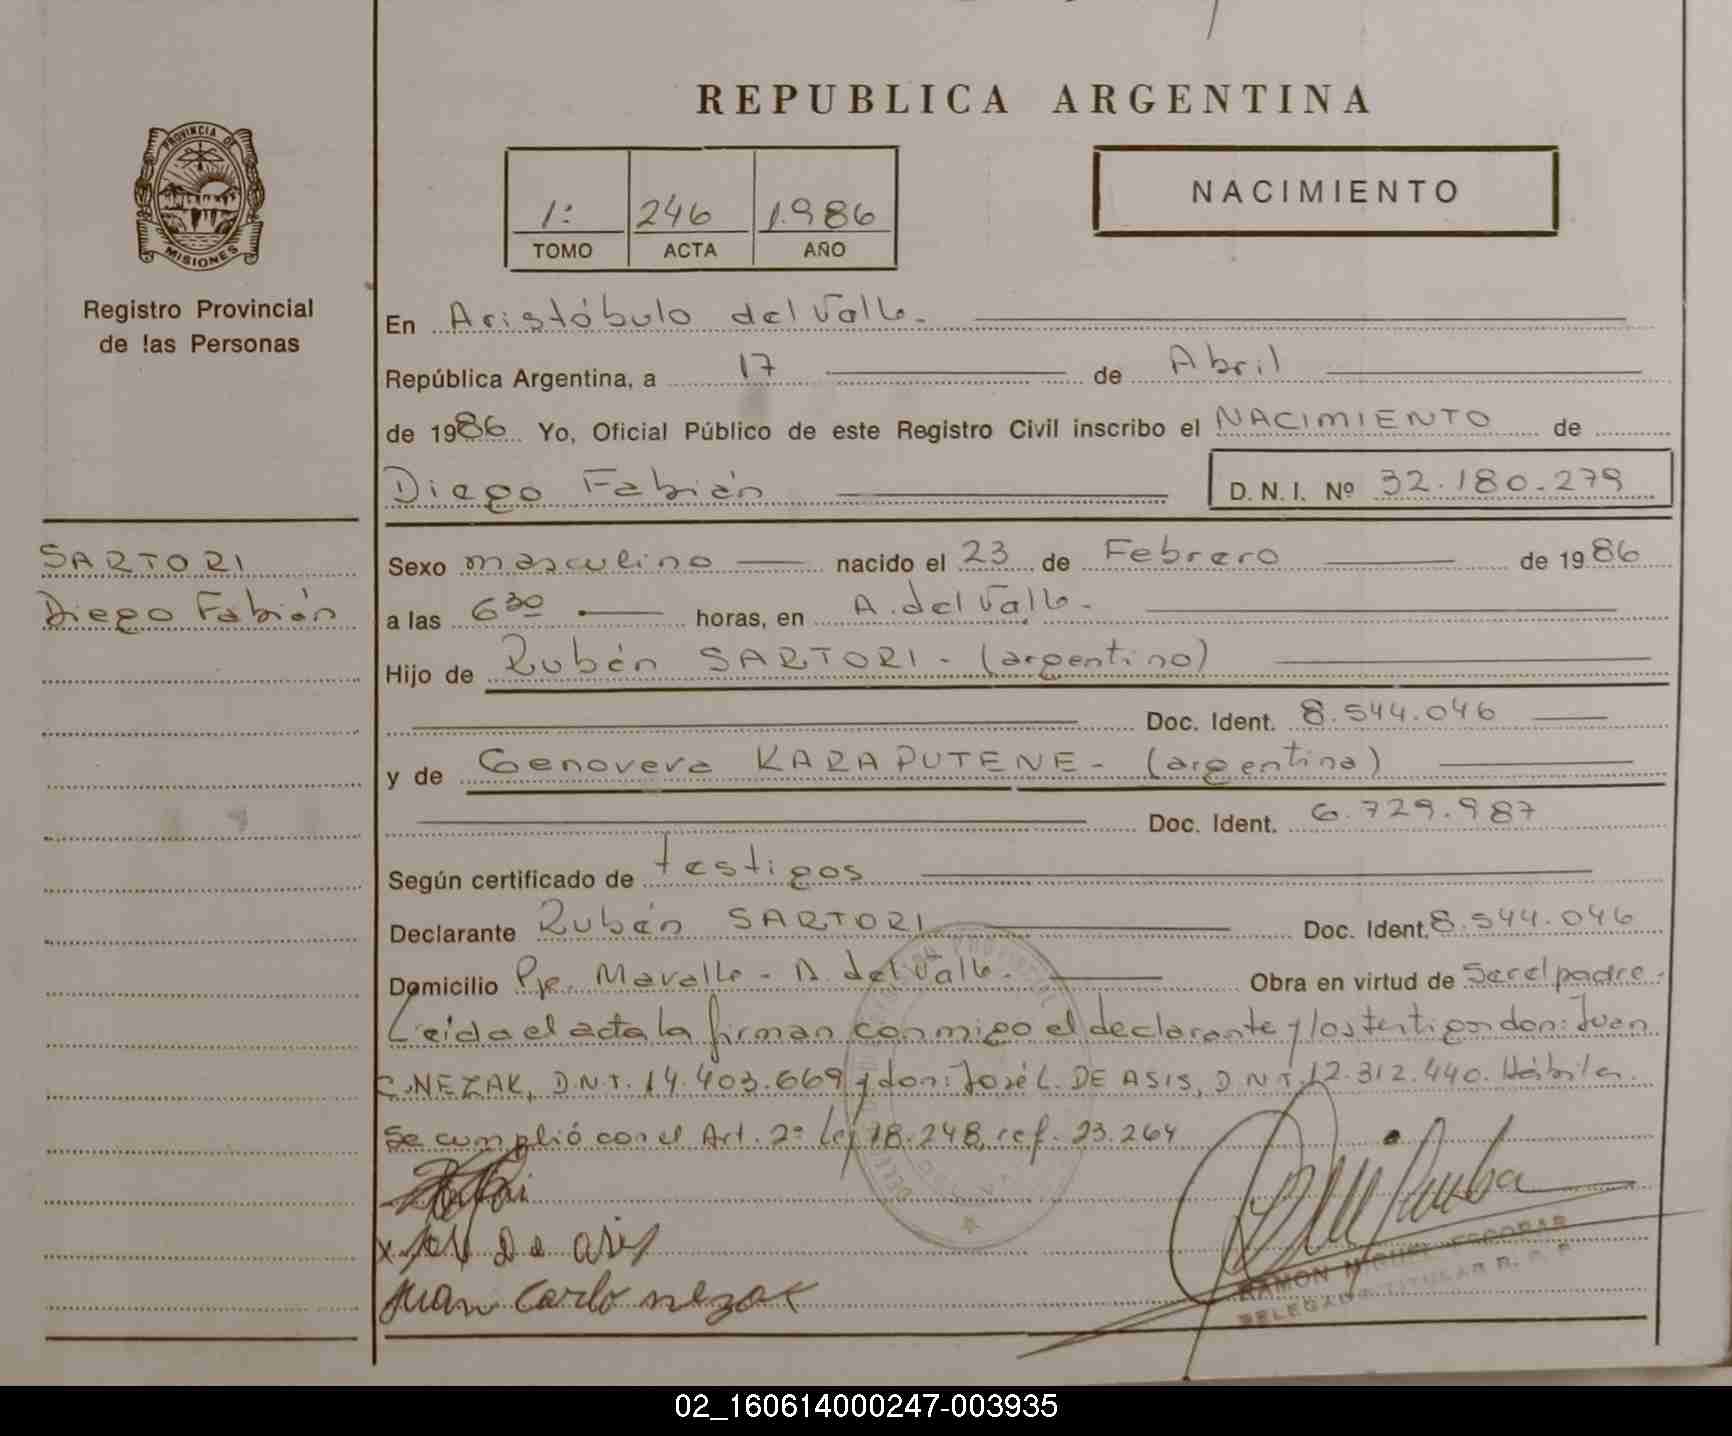 REPUBLICA ARGENTINA
PROVINCIA DE
MISIONES
Registro Provincial
de las Personas
1º 246 1.986
TOMO ACTA AÑO
NACIMIENTO
En Aristóbulo del Valle.
República Argentina, a 17 de Abril
de 1986 Yo, Oficial Público de este Registro Civil inscribo el NACIMIENTO de
Diego Fabián D.N.I. Nº 32.180.279
SARTORI
Diego Fabián
Sexo masculino nacido el 23 de Febrero de 1986
a las 6 30 horas, en A. del Valle.
Hijo de Rubén SARTORI - (argentino)
Doc. Ident. 8.544.046
y de Genoveva KARAPUTENE - (argentina)
Doc. Ident. 6.729.987
Según certificado de testigos
Declarante Rubén SARTORI Doc. Ident. 8.544.046
Domicilio Pje. Mavalle - A. del Valle. Obra en virtud de Ser el padre.
Leida el acta la firman conmigo el declarante y los testigos don: Juan
C. NEZAK, D.N.I. 14.403.669 y don: José L. DE ASIS, D.N.I. 12.312.440. Hábiles.
Se cumplió con el Art. 2º Ley 18.248, ref. 23.264
De asis
Juan Carlo nezak
RAMON MIGUEL ESCOBAR
DELEGADO TITULAR R. P. P.
02_160614000247-003935